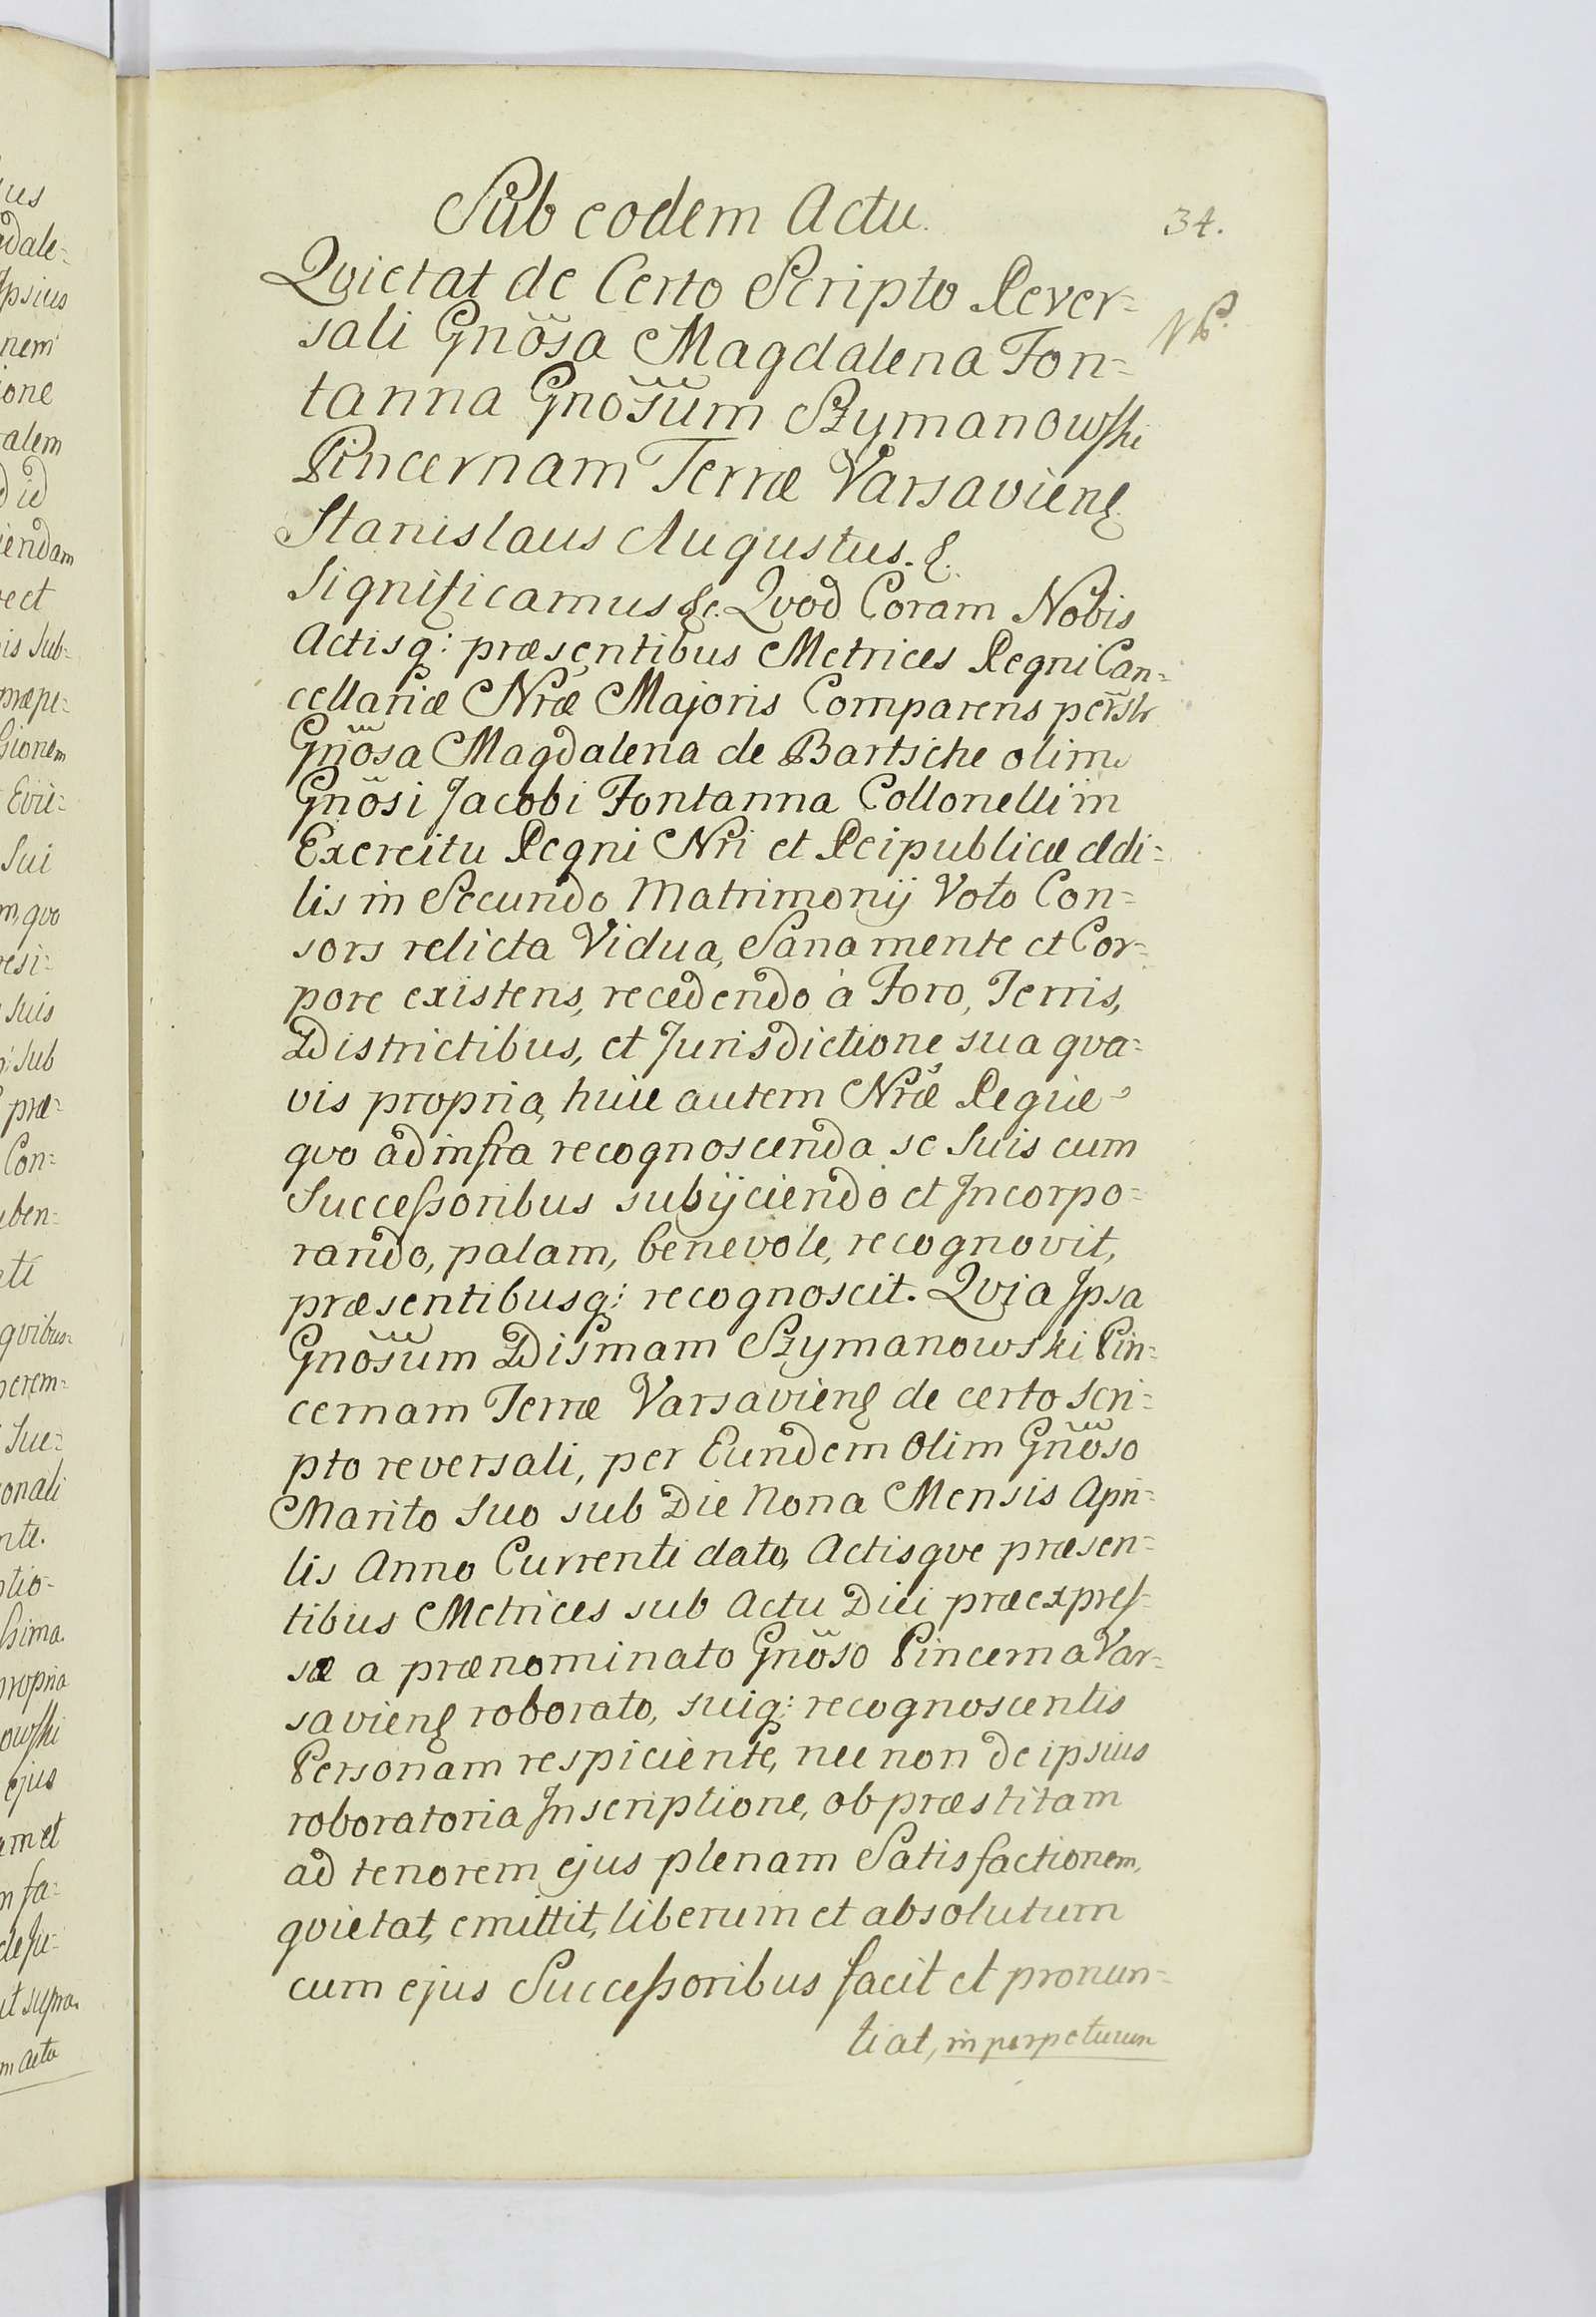 Sub eodem Actu.
34.
Qvietat de Certo Scripto Rever=
NB.
sali Gnõsa Magdalena Fon=
tanna Gnõsum Szymanowski
Pincernam Terræ Varsavieng
Stanislaus Augustus. &.
Significamus &c. Qvod Coram Nobis
Actisq: præsentibus Metrices Regni Can=
cellariæ Nræ Majoris Comparens persłr
Gnõsa Magdalena de Bartsche olim
Gnõsi Jacobi Fontanna Collonelli in
Exercitu Regni Nri et Reipublicæ Ædi=
lis in Secundo Matrimonij Voto Con=
sors relicta Vidua, Sana mente et Cor=
pore existens, recedendo à Foro, Terris,
Districtibus, et Jurisdictione sua qva=
vis propria, huic autem Nræ Regiæ
qvo ad infra recognoscenda se Suis cum
Successoribus subijciendo et Incorpo=
rando, palam, benevole, recognovit,
præsentibusq: recognoscit. Qvia Ipsa
Gnõsum Dismam Szymanowski Pin=
cernam Terræ Varsavieng de certo Scri=
pto reversali, per Eundem Olim Gnõso
Marito Suo sub Die Nona Mensis Apri=
lis Anno Currenti dato, Actisqve præsen=
tibus Metrices sub Actu Diei præexpres=
sæ a prænominato Gnõso Pincerna Var=
savieng roborato, suiq: recognoscentis
Personam respiciente, nec non de ipsius
roboratoria Inscriptione, ob præstitam
ad tenorem ejus plenam Satisfactionem,
qvietat, emittit, liberum et absolutum
cum ejus Successoribus facit et pronun=
tiat, in perpetuum